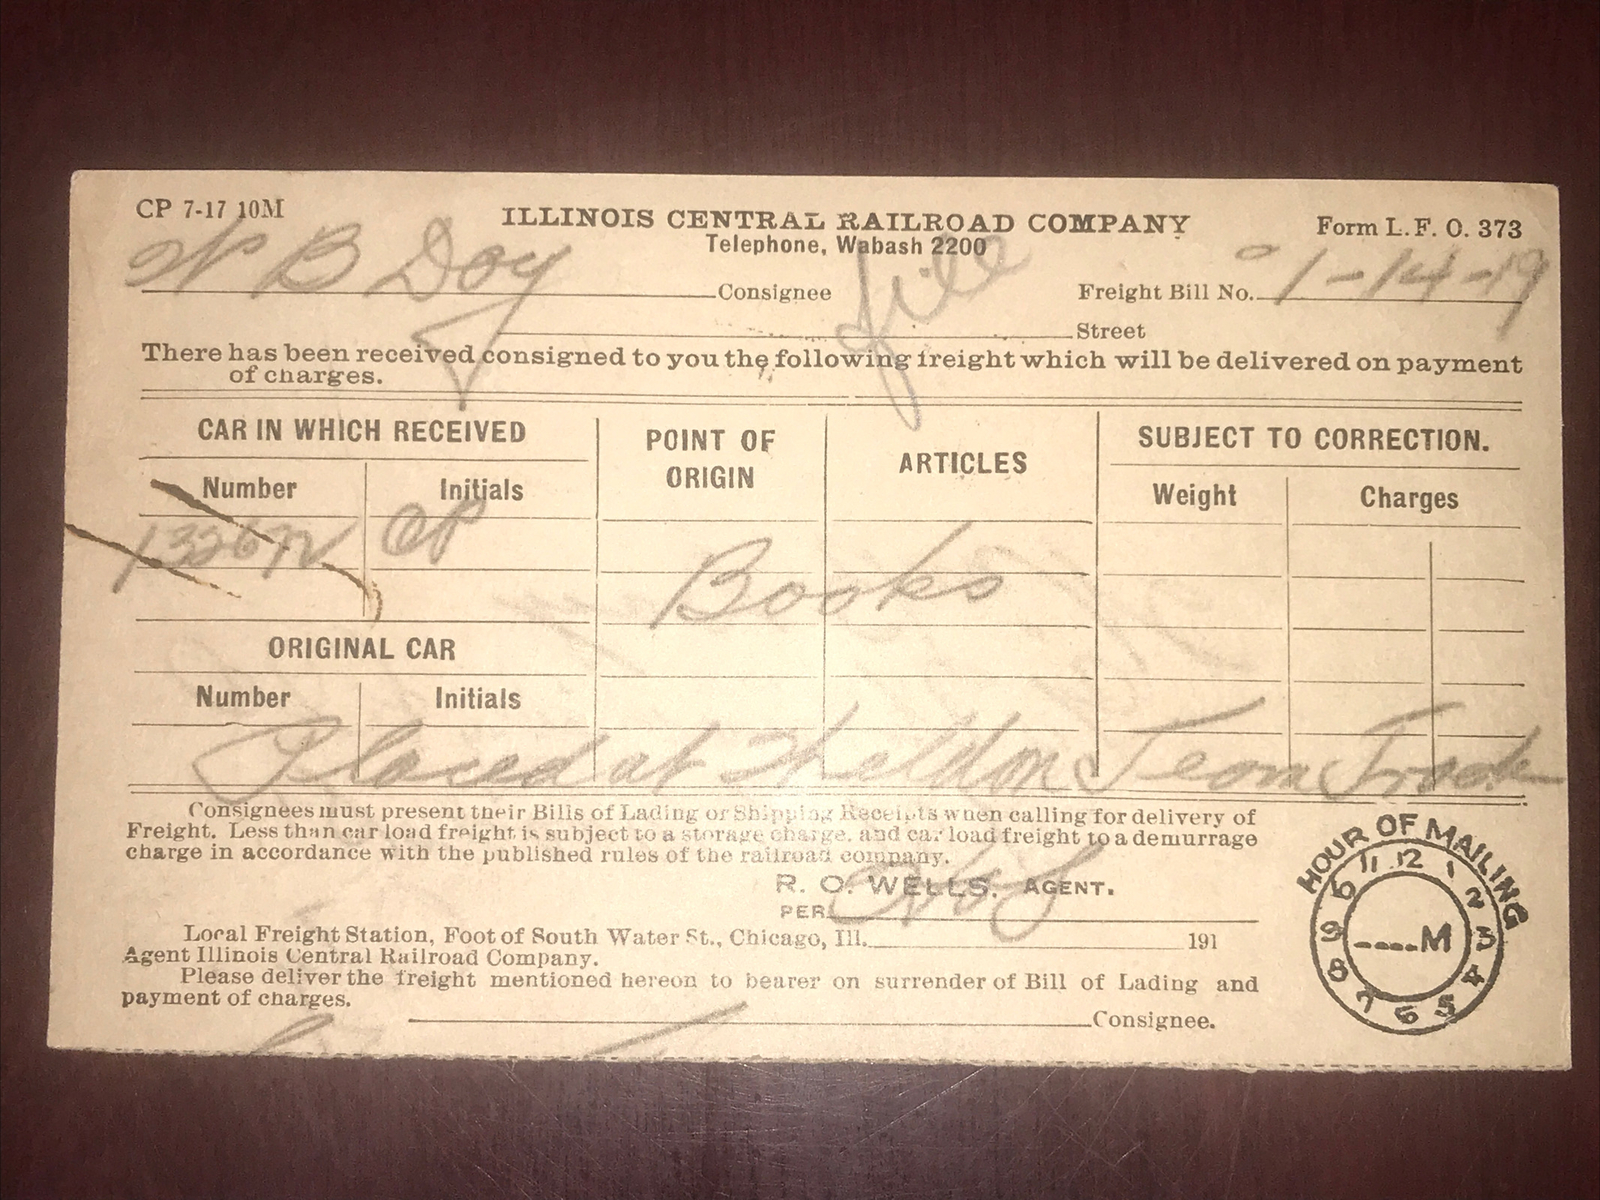 CP 7-17 10M
ILLINOIS CENTRAL RAILROAD COMPANY
Form L. F. O. 373
Telephone, Wabash 2200
W B Doy Consignee
file
Freight Bill No. 1-14-19
Street
There has been received consigned to you the following freight which will be delivered on payment
of charges.
CAR IN WHICH RECEIVED
POINT OF
ORIGIN
ARTICLES
SUBJECT TO CORRECTION.
Number Initials
Weight Charges
CP
Books
ORIGINAL CAR
Number Initials
Placed at Sheldon Team Track
Consignees must present their Bills of Lading or Shipping Receipts when calling for delivery of
Freight. Less than car load freight is subject to a storage charge, and car load freight to a demurrage
charge in accordance with the published rules of the railroad company.
R. O. WELLS, AGENT.
PER
Local Freight Station, Foot of South Water St., Chicago, Ill. 191
Agent Illinois Central Railroad Company.
Please deliver the freight mentioned hereon to bearer on surrender of Bill of Lading and
payment of charges.
Consignee.
HOUR OF MAILING
12 1 2 3 4 5 6 7 8 9 10 11
M